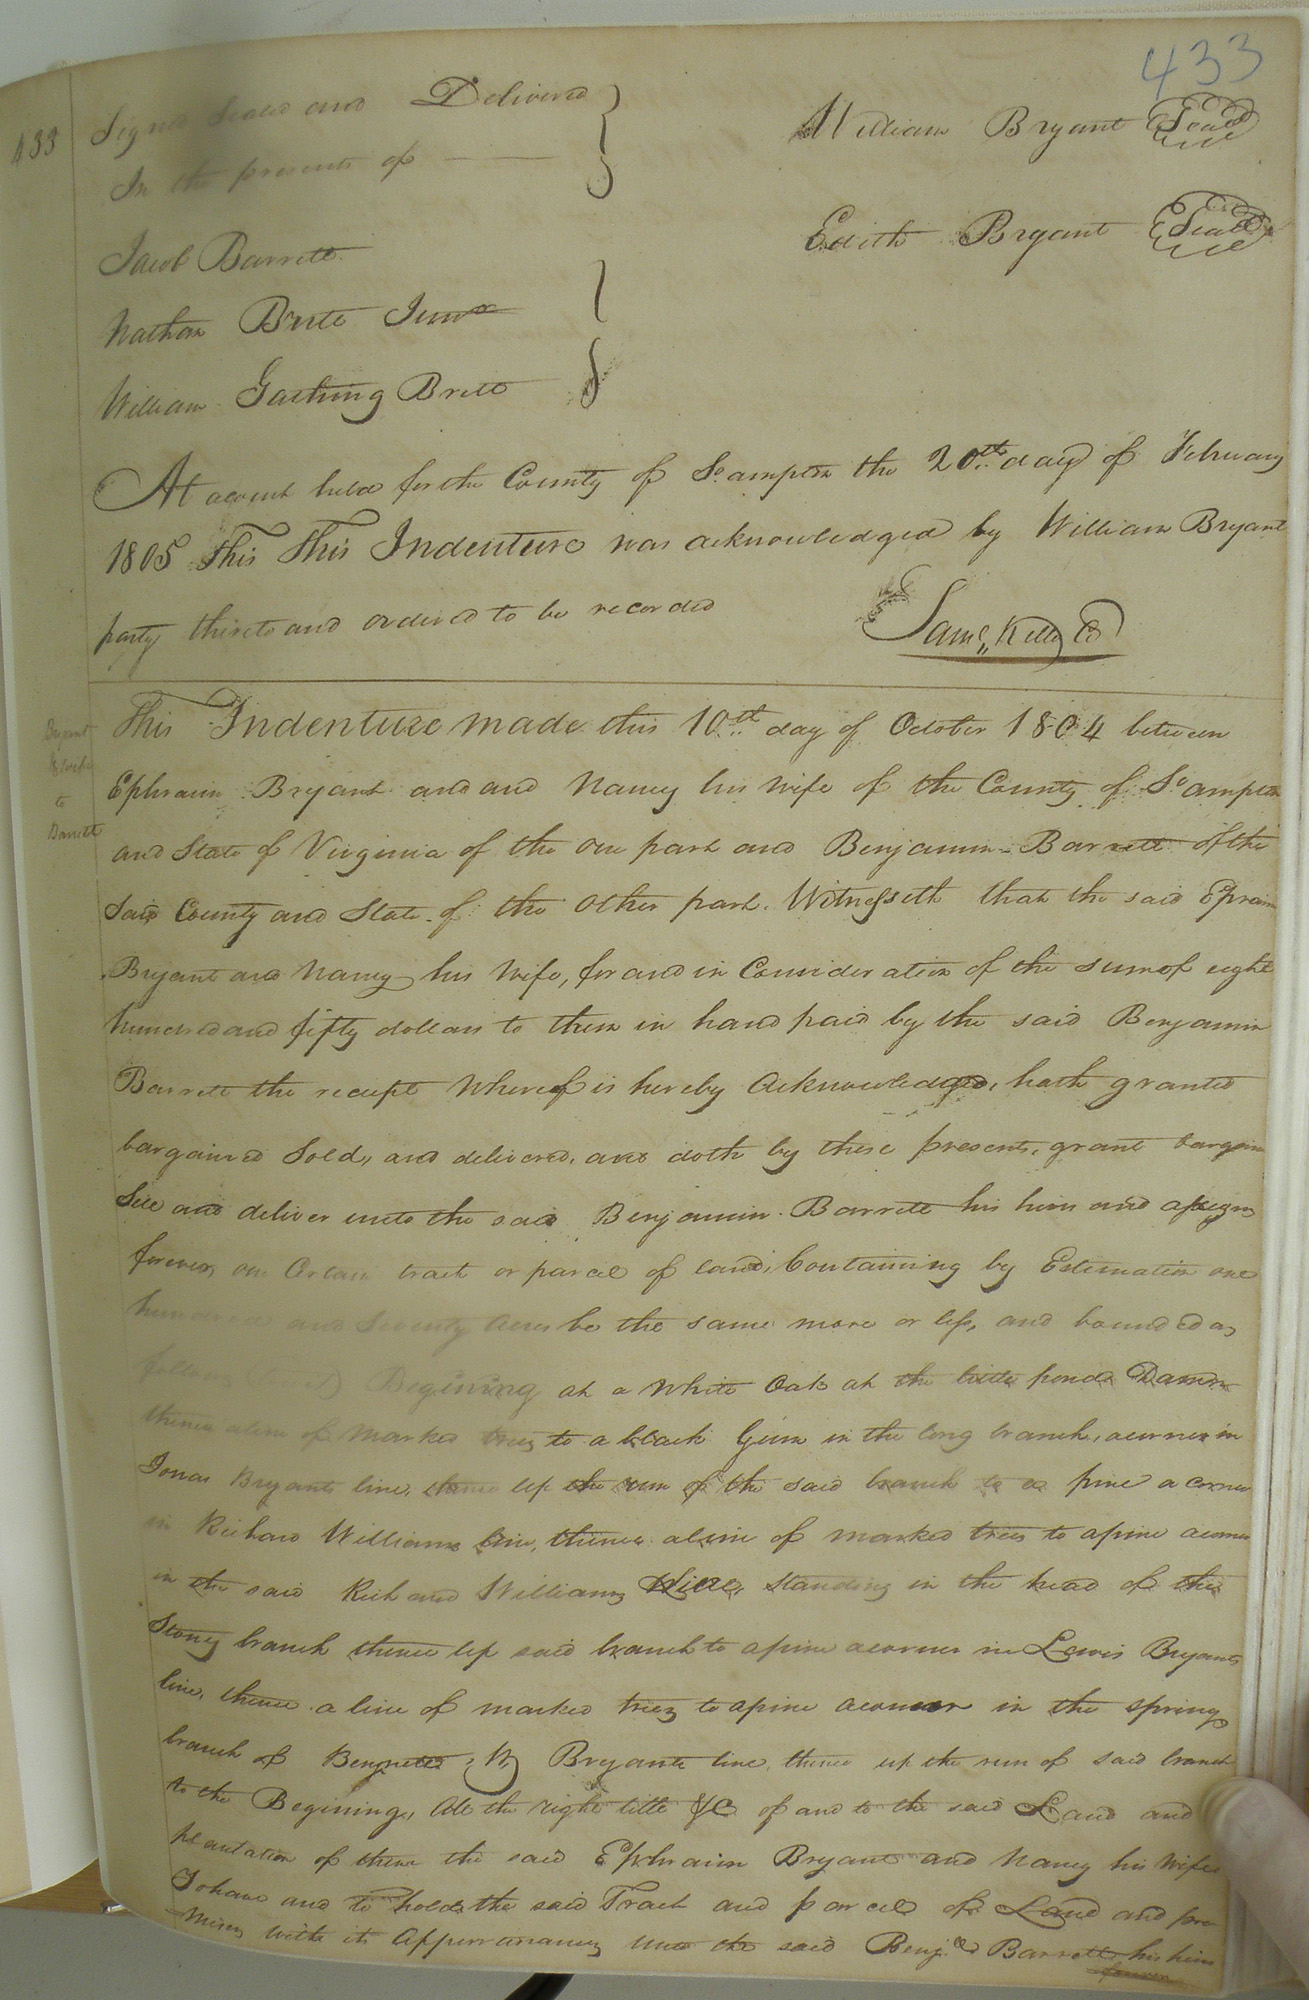 433
433
Signed Sealed and Delivered
In the presents of
William Bryant Seal
Edith Bryant Seal
Jacob Barrett
Nathan Britt Junr
William Gatling Britt
At acourt held for the County of So.ampton the 20th day of February
1805 This This Indenture was acknowledged by William Bryant
party thireto and ordered to be recorded
Saml, Kello Cl
Bryant
& wife
to
Barrett
This Indenture made this 10th day of October 1804 between
Ephraim Bryant and and Nancy his Wife of the County of So ampton
and State of Virginia of the One part and Benjamin Barrett of the
Said County and State of the Other part. Witnesseth that the said Epraim
Bryant and Nancy his Wife, for and in Consideration of the sum of eight
hundred and fifty dollars to them in hand paid by the said Benjamin
Barrett the receipt Whereof is hereby Acknowledged, hath granted
bargained Sold, and delivered, and doth by these presents, grant bargain
Sell and deliver unto the said Benjamin Barrett his hiers and assigns
forever, one Certain tract or parcel of land, Containing by Estimation one
hundred and Seventy Acres be the same more or less, and bounded as
follows Begining at a White Oak at the little pond Damm
thence aline of Marked trees to a black Gum in the long branch, acorner in
Jonas Bryants line, thence up the run of the said branch to a pine a corner
in Richard Williams line, thence aline of marked trees to apine acorner
in the said Richard Williams Line, Standing in the head of the
Stony branch thence up said branch to apine acorner in Lewis Bryants
line, thence a line of marked trees to apine acorner in the spring
branch of Bryants line, thence up the run of said branch
to the Begining, All the right title &C of and to the said Land and
plantation of them the said Ephraim Bryant and Nancy his Wife
To have and to hold the said Tract and parcel of Land and pre
mises with its Appurtanances unto the said Benja. Barrett his hiers
forever